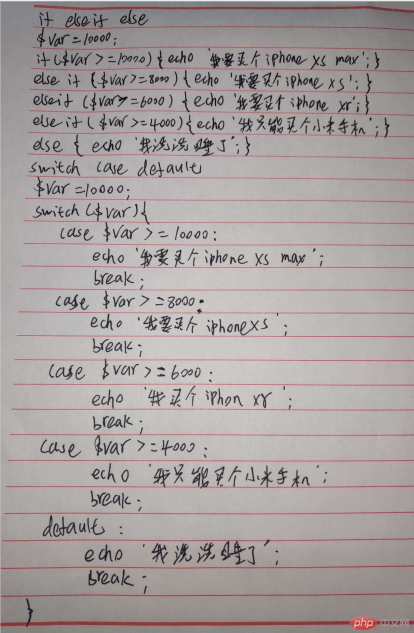 if elseif else
$var=10000;
if($var>=10000){echo '我要买个iphone xs max';}
else if ($var>=8000){echo '我要买个iphone xs';}
elseif ($var>=6000) {echo '我要买个iphone xr';}
else if ($var>=4000){echo '我只能买个小米手机';}
else { echo '我洗洗睡了';}
switch case default
$var=10000;
switch($var){
case $var>=10000:
echo '我要买个iphone xs max';
break;
case $var>=8000:
echo '我要买个iphonexs';
break;
case $var>=6000:
echo '我买个iphon xr';
break;
case $var>=4000:
echo '我只能买个小米手机';
break;
default:
echo '我洗洗睡了';
break;
}
php